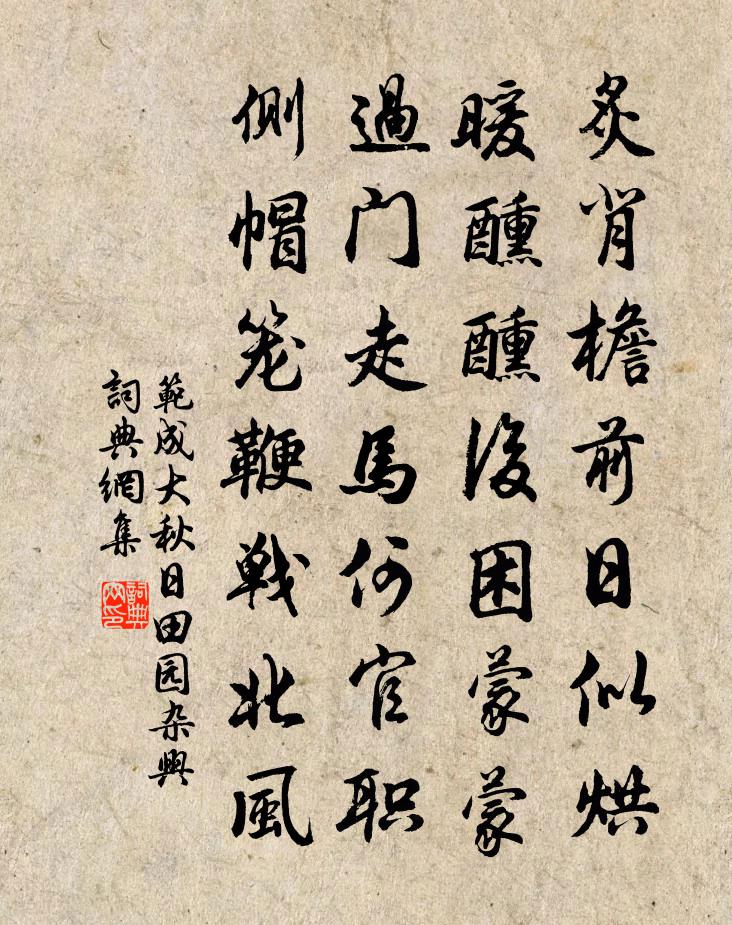 炙背檐前日似烘
暖醺醺後困蒙蒙
過门走馬何官职
側帽笼鞭戦北風
範成大秋日田园杂興
詞典網集
詞典網印